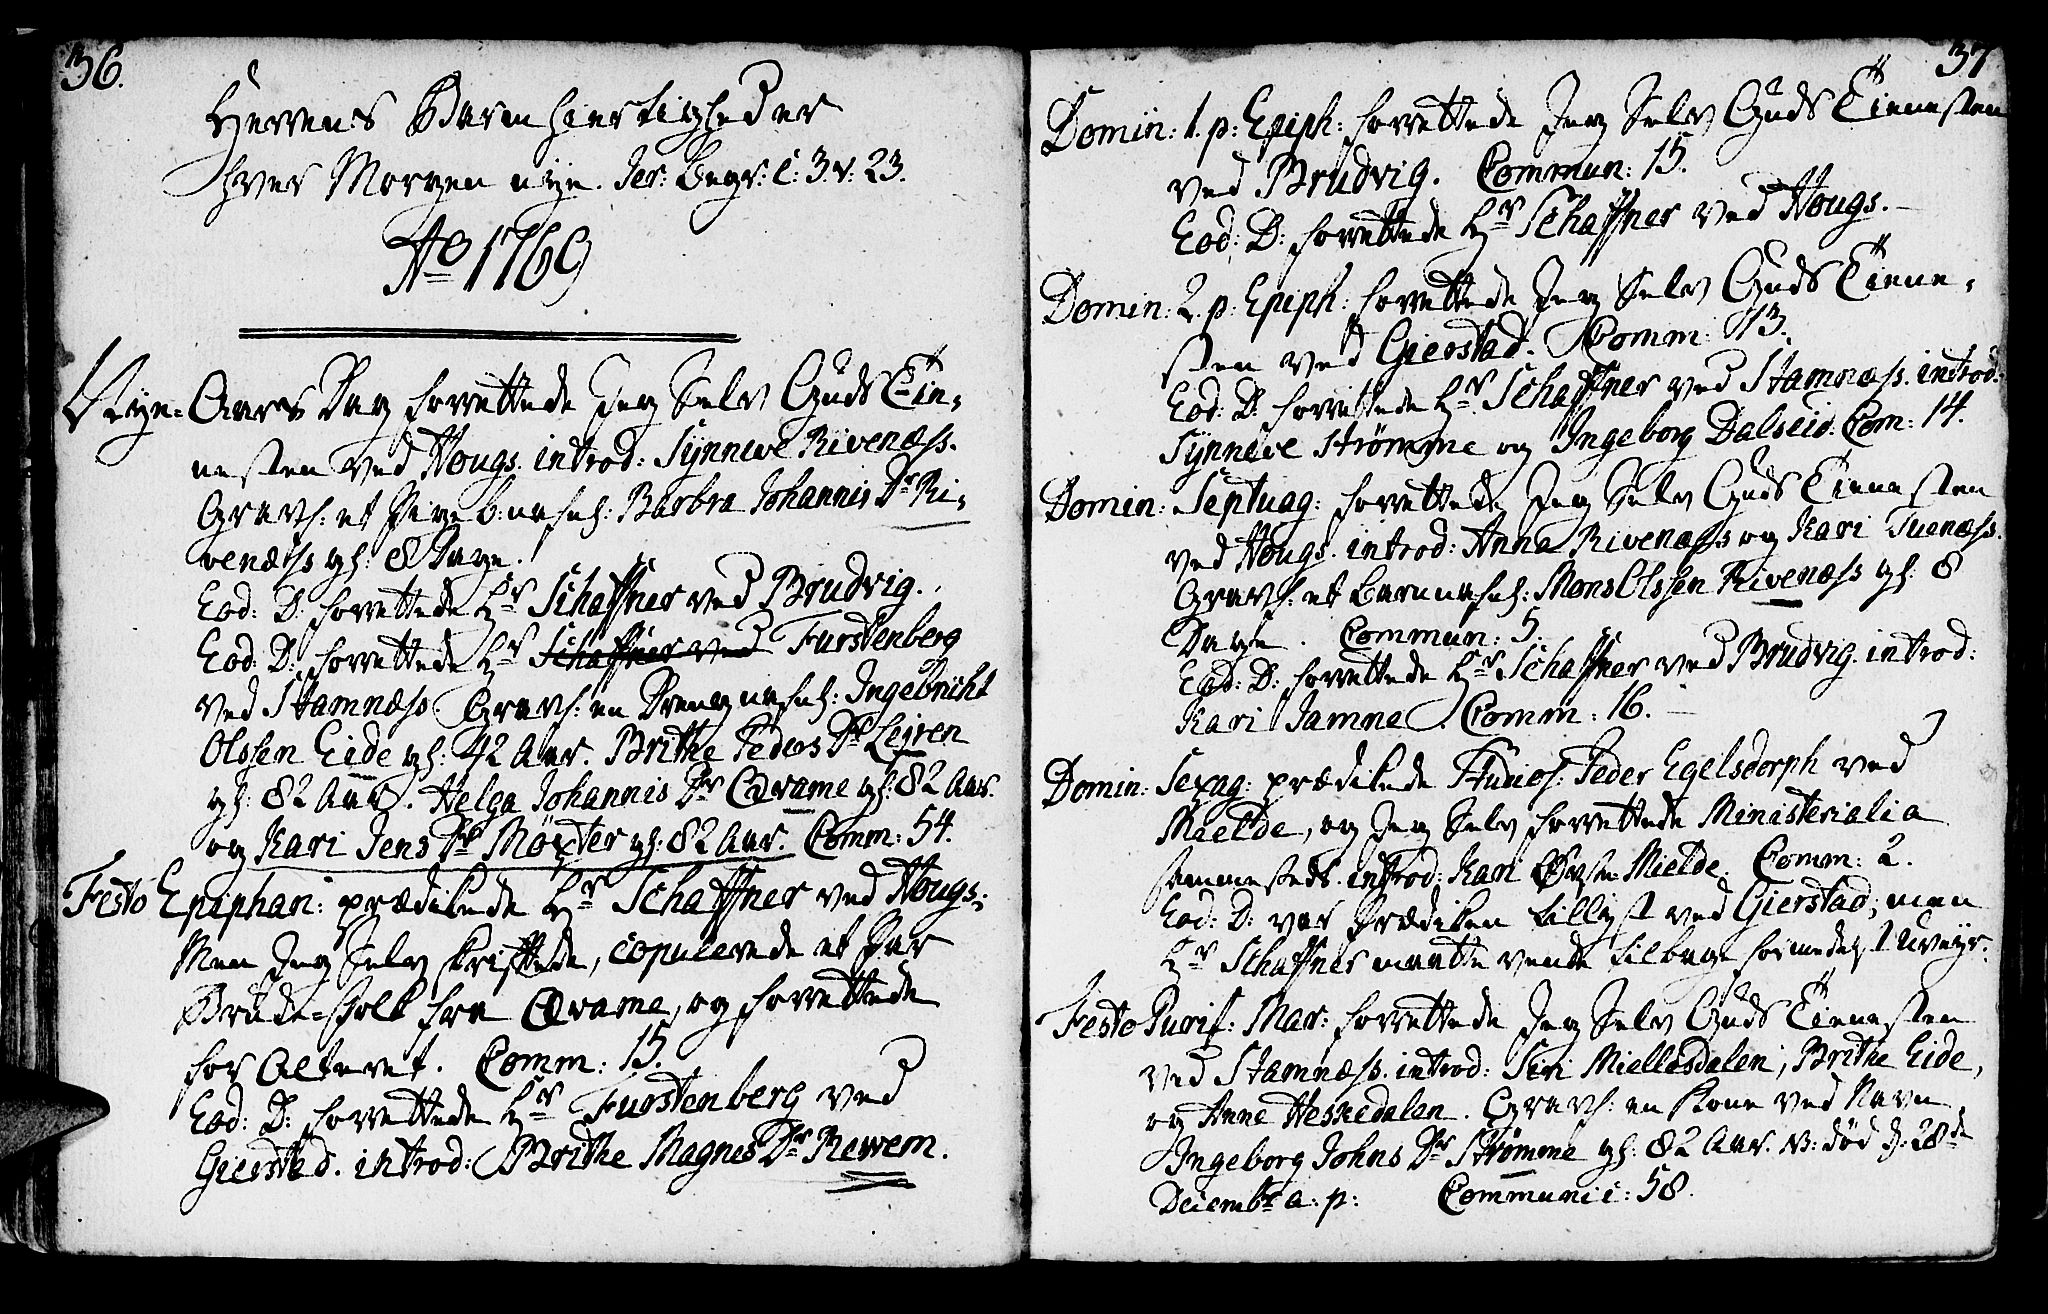 36.
Herrens Barmhiertigheder
hver Morgen nÿe. Jer: Begr: C: 3. v: 23.
Ao 1769
Nÿe-Aars Dag forrettede Jeg Selv Guds Tien-
nesten ved Hougs. introd: Sÿnneve Rivenæss.
Gravf: et Pigeb: nafnl: Barbra Johannis Dr Ri-
venæss gl: 8 Dage.
Eod: D: forrettede Hr Schaffner ved Brudvig.
Eod: D: forrettede Hr Schaffner ved Furstenberg
ved Stamnæss Gravf: en Dreng nafnl: Ingebricht
Olssen Eide gl: 42 Aar. Brithe Peders Dr Lejren
gl: 82 Aar. Helga Johannis Dr Qvame gl: 82 Aar.
og Kari Jens Dr Møxter gl: 82 Aar. Comm: 54.
Festo Epiphan: prædikede Hr Schaffner ved Hougs:
Men Jeg Selv skriftede, copulerede et Par
Brude-folk fra Qvame, og forrettede
for Alteret. Comm: 15.
Eod: D: forrettede Hr Furstenberg ved
Gierstad. introd: Brithe Magnes Dr Rewem.
37
Domin: 1. p: Epiph: forrettede Jeg Selv Guds Tienesten
ved Brudvig. Commun: 15.
Eod: D: forrettede Hr Schaffner ved Hougs.
Domin: 2. p: Epiph: forrettede Jeg Selv Guds Tiene-
sten ved Gierstad. Comm: 13.
Eod: D: forrettede Hr Schaffner ved Stamnæss. introd:
Sÿnneve Strømme og Ingeborg Dalseid. Com: 14.
Domin: Septuag: forrettede Jeg Selv Guds Tienesten
ved Hougs. introd: Anna Rivenæss og Kari Tuenæss.
Gravf: et barn nafnl: Mons Olssen Rivenæss gl: 8
Dage. Commun: 5.
Eod: D: forrettede Hr Schaffner ved Brudvig. introd:
Kari Jamne. Comm: 16.
Domin: Sexag: prædikede Studios: Peder Egelsdorph ved
Mielde, og Jeg Selv forrettede Ministerialia
sammesteds. introd: Kari Mielde. Comm: 2.
Eod: D: var Prædiken tillÿst ved Gierstad, men
Hr Schaffner maatte vende tilbage formedelst Uveÿr.
Festo Purif: Mar: forrettede Jeg Selv Guds Tienesten
ved Stamnæss. introd: Siri Miellesdalen, Brithe Eide,
og Anne Heskedalen. Gravf: en Kone ved Navn
Ingeborg Johns Dr Strømme gl: 82 Aar. N: død d: 28de
Decembr a: p: Communic: 58.